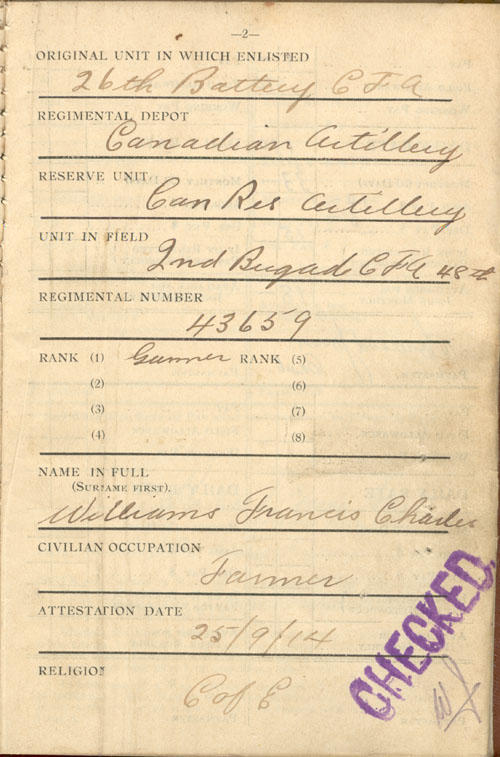 —2—
ORIGINAL UNIT IN WHICH ENLISTED
26th Battery C F A
REGIMENTAL DEPOT
Canadian Artillery
RESERVE UNIT
Can Res Artillery
UNIT IN FIELD
2nd Brigade C F A 48th
REGIMENTAL NUMBER
43659
RANK (1) Gunner RANK (5)
(2) (6)
(3) (7)
(4) (8)
NAME IN FULL
(SURNAME FIRST).
Williams Francis Charles
CIVILIAN OCCUPATION
Farmer
ATTESTATION DATE
25/9/14
RELIGION
C of E
CHECKED